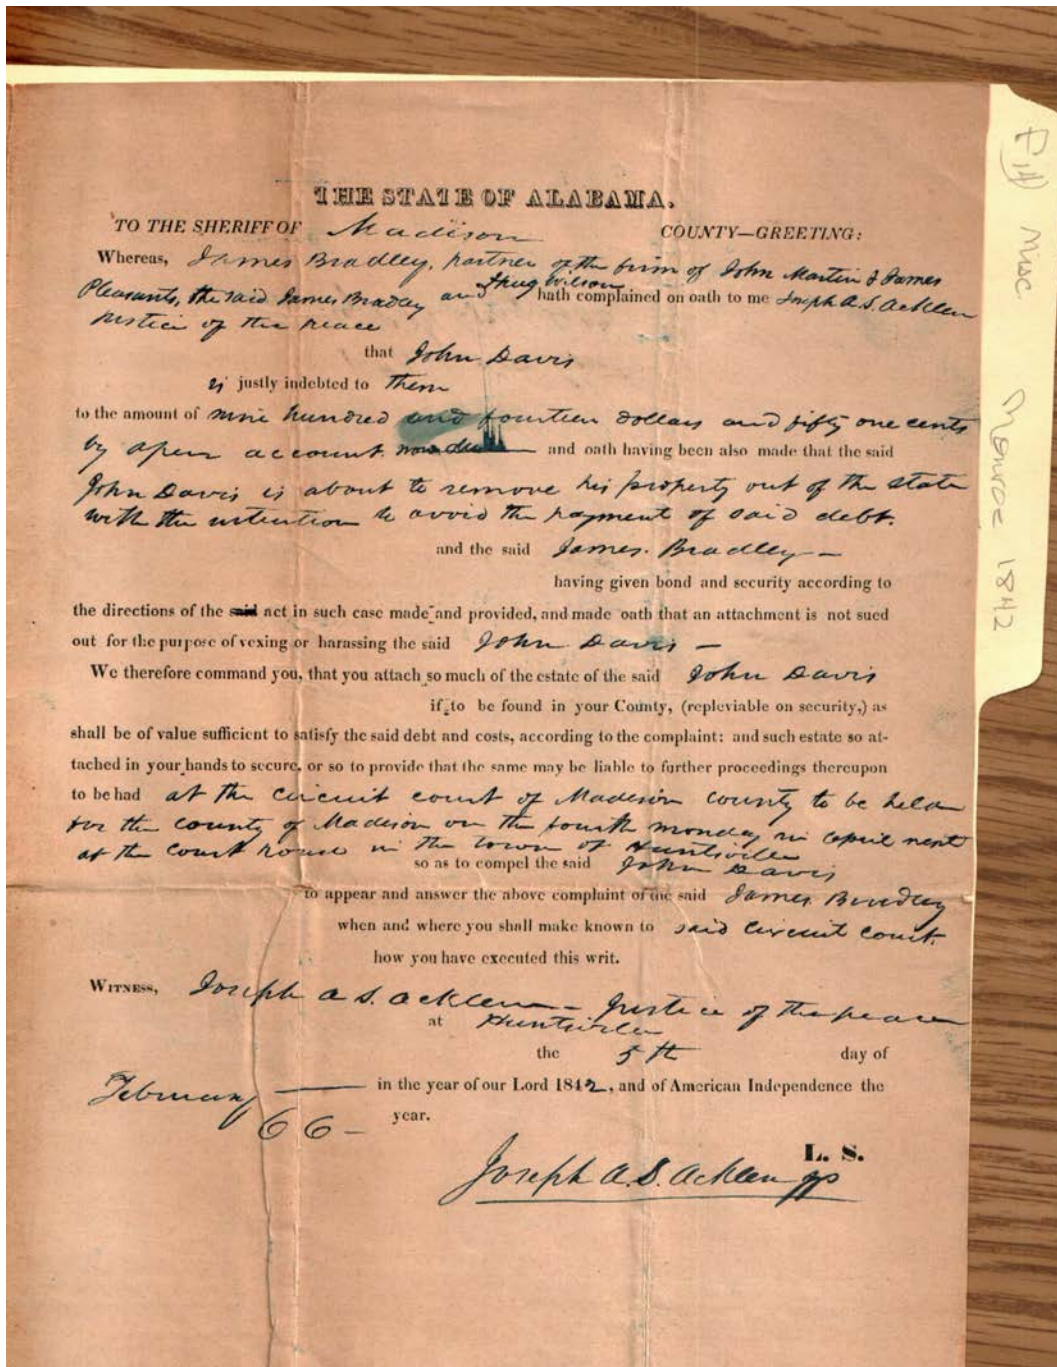 THE STATE OF ALABAMA.
TO THE SHERIFF OF Madison COUNTY—GREETING:
Whereas, James Bradley, partner of the firm of John Martin & James
Pleasants, the said James Bradley and Wilson hath complained on oath to me Joseph A. S. Acklen
Justice of the peace
that John Davis
is justly indebted to them
to the amount of nine hundred and fourteen dollars and fifty one cents
by open account now due and oath having been also made that the said
John Davis is about to remove his property out of the state
with the intention to avoid the payment of said debt.
and the said James Bradley —
having given bond and security according to
the directions of the said act in such case made and provided, and made oath that an attachment is not sued
out for the purpose of vexing or harassing the said John Davis —
We therefore command you, that you attach so much of the estate of the said John Davis
if to be found in your County, (repleviable on security,) as
shall be of value sufficient to satisfy the said debt and costs, according to the complaint: and such estate so at-
tached in your hands to secure, or so to provide that the same may be liable to further proceedings thereupon
to be had at the circuit court of Madison county to be held
for the county of Madison on the fourth monday in april next
at the court house in the town of Huntsville
so as to compel the said John Davis
to appear and answer the above complaint of the said James Bradley
when and where you shall make known to said circuit court.
how you have executed this writ.
WITNESS, Joseph A S. Acklen — Justice of the peace
at Huntsville
the 5th day of
February — in the year of our Lord 1842, and of American Independence the
66 — year.
L. S.
Joseph A. S. Acklen JP
Misc
Monroe 1842